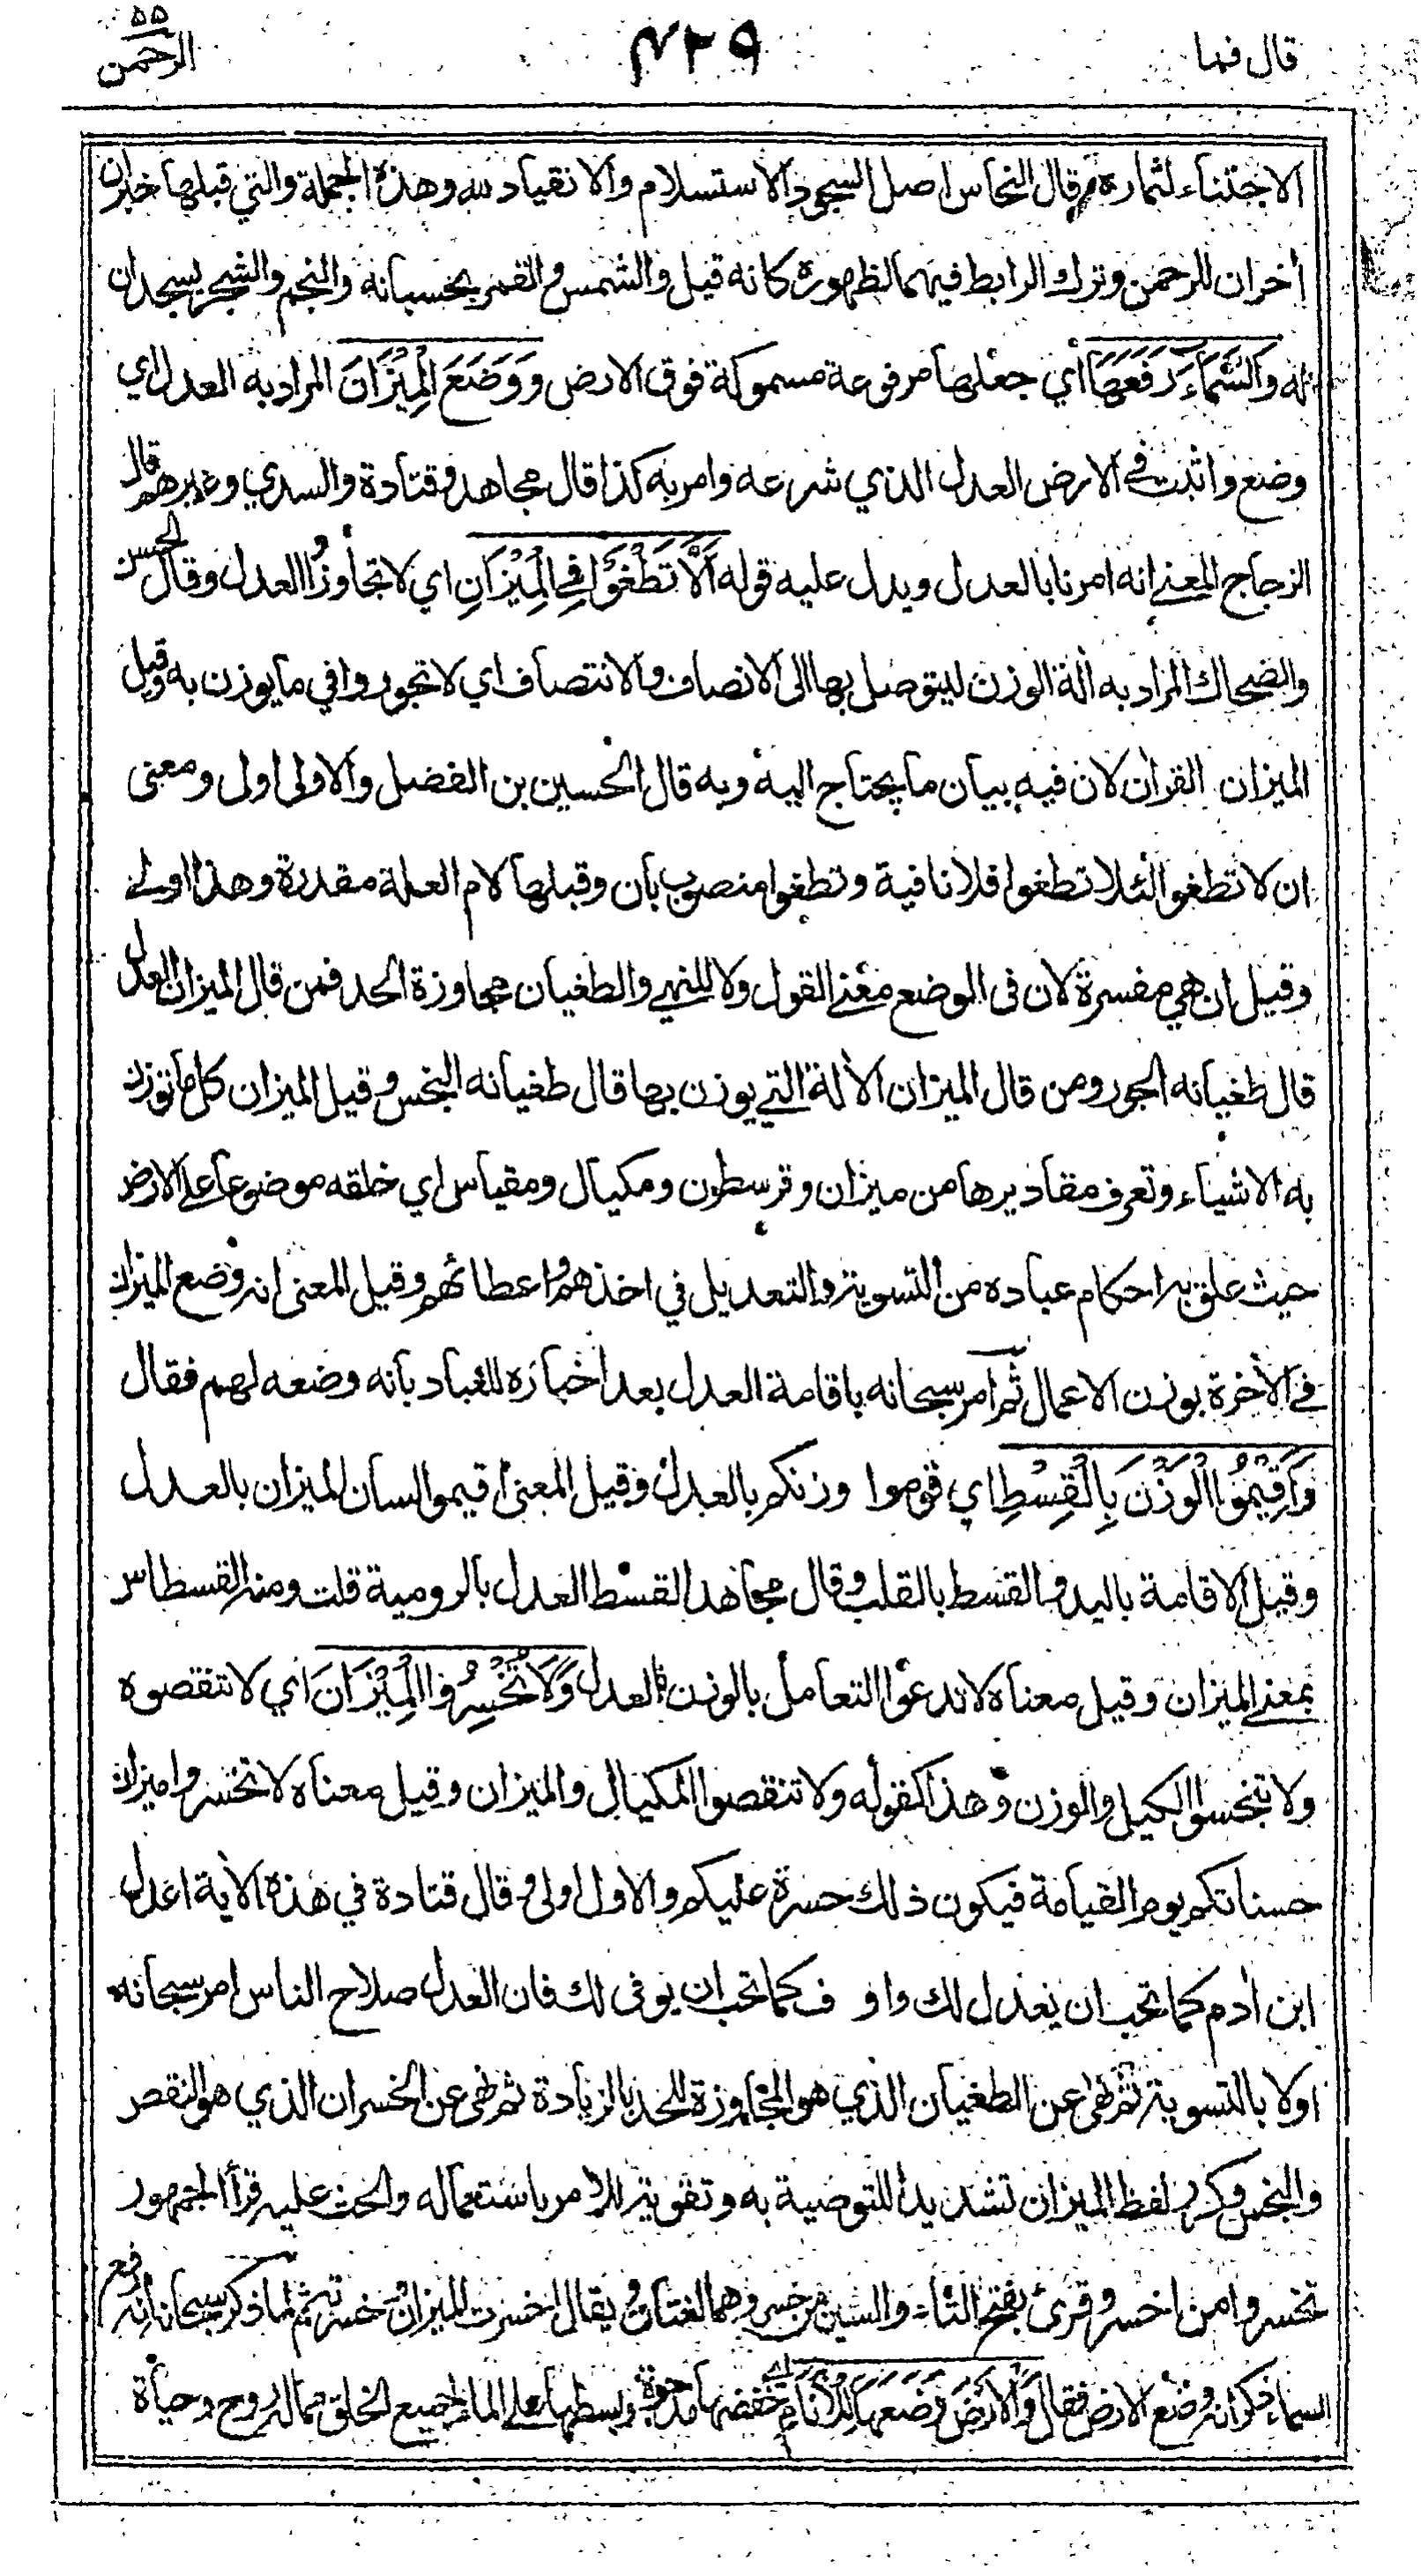 قال فما
٤٢٩
٥٥
الرحمن
الاجتناء لثماره وقال النحاس اصل السجود الاستسلام والانقياد لله وهذه الجملة والتي قبلها خبران
أخران للرحمن وترك الرابط فيهما لظهوره كانه قيل والشمس والقمر بحسبانه والنجم والشجر يسجدان
له وَالسَّمَاءَ رَفَعَهَا أي جعلها مرفوعة مسموكة فوق الارض وَوَضَعَ الْمِيْزَانَ المراد به العدل اي
وضع واثبت في الارض العدل الذي شرعه وامر به كذا قال مجاهد وقتادة والسدي وغيرهم قال
الزجاج المعنى انه امرنا بالعدل ويدل عليه قوله اَلَّا تَطْغَوْا فِي الْمِيْزَانِ اي لا تجاوزوا العدل وقال الحسن
والضحاك المراد به ألة الوزن ليتوصل بها الى الانصاف والانتصاف اي لا تجوروا في ما يوزن به وقيل
الميزان القرأن لان فيه بيان ما يحتاج اليه وبه قال الحسين بن الفضل والاولى اولى ومعنى
ان لا تطغوا لئلا تطغوا فلا نافية وتطغوا منصوب بان وقبلها لام العلة مقدرة وهذا اولى
وقيل ان هي مفسرة لان في الوضع معنى القول ولا للنهي والطغيان مجاوزة الحد فمن قال الميزان العدل
قال طغيانه الجور ومن قال الميزان الألة التي يوزن بها قال طغيانه البخس وقيل الميزان كل ما توزن
به الاشياء وتعرف مقاديرها من ميزان وقرسطون ومكيال ومقياس اي خلقه موضوعا على الارض
حيث علق به احكام عباده من التسوية والتعديل في اخذهم واعطائهم وقيل المعنى انه وضع الميزان
في الأخرة بوزن الاعمال ثم امر سبحانه باقامة العدل بعد اخباره للعباد بانه وضعه لهم فقال
وَاَقِيْمُوا الْوَزْنَ بِالْقِسْطِ اي قوموا وزنكم بالعدل وقيل المعنى اقيموا لسان الميزان بالعدل
وقيل الاقامة باليد والقسط بالقلب وقال مجاهد القسط العدل بالرومية قلت ومنه القسطاس
بمعنى الميزان وقيل معناه لا تدعوا التعامل بالوزن بالعدل وَلَا تُخْسِرُوا الْمِيْزَانَ اي لا تنقصوه
ولا تبخسوا الكيل والوزن وهذا كقوله ولا تنقصوا المكيال والميزان وقيل معناه لا تخسروا ميزان
حسناتكم يوم القيامة فيكون ذلك حسرة عليكم والاول اولى وقال قتادة في هذه الأية اعدل
ابن أدم كما تحب ان يعدل لك واو ف كما تحب ان يوفى لك فان العدل صلاح الناس امر سبحانه
اولا بالتسوية ثم نهى عن الطغيان الذي هو المجاوزة للحد بالزيادة ثم نهى عن الخسران الذي هو النقص
والبخس وكرر لفظ الميزان تشديدا للتوصية به وتقوية للامر باستعماله والحث عليه قرأ الجمهور
تخسروا من اخسر وقرئ بفتح التاء والسين من خسر وهما لغتان يقال اخسرت الميزان وخسرته ثم لما ذكر سبحانه انه رفع
السماء ذكر انه وضع الارض فقال وَالْاَرْضَ وَضَعَهَا لِلْاَنَامِ اي خفضها مدحوة وبسطها على الماء لجميع الخلق مما له روح وحياة